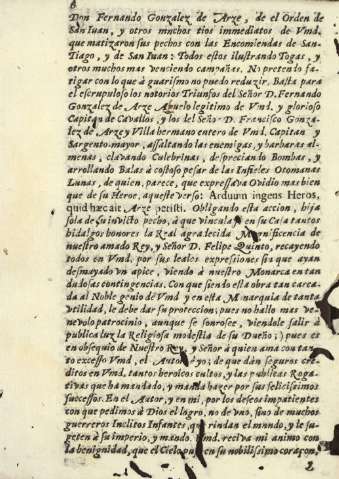 6
Don Fernando Gonzalez de Arze, de el Orden de
San Iuan, y otros mnchos tios immediatos de Vmd,
que matizaron sus pechos con las Encomiendas de San-
Tiago, y de San Iuan: Todos estos ilustrando Togas, y
otros muchos mas venciendo campañas. No pretendo fa-
tigar con lo que à guarismo no puedo reduzir. Basta para
el escrupuloso los notorios Triunfos del Señor D. Fernando
Gonzalez de Arze Abuelo legitimo de Vmd, y glorioso
Capitan de Cavallos, y los del Señor D. Francisco Gonza-
lez de Arze y Villa hermano entero de Vmd. Capitan y
Sargento mayor, assaltando las enemigas, y barbaras al-
menas, clavando Culebrinas, despreciando Bombas, y
arrollando Balas à costoso pesar de las Infieles Otomanas
Lunas, de quien, parece, que expressava Ovidio mas bien
que de su Heroe, aqueste verso: Arduum ingens Heros,
quid hæcait, Arze petisti. Obligando esta accion, hija
sola de su invicto pecho, à que vincula en su Casa tantos
hidalgos honores la Real agra lecida Magnificencia de
nuestro amado Rey, y Señor D. Felipe Quinto, recayendo
todos en Vmd. por sus leales expressiones sin que ayan
desmayado un apice, viendo à nuestro Monarca en tan
dudosas contingencias. Con que siendo esta obra tan carea-
da al Noble genio de Vmd y en esta Monarquia de tanta
utilidad, le debe dar su proteccion; pues no hallo mas ve-
nevolo patrocinio, aunque se sonrosee, viendole salir à
publica luz la Religiosa modestia de su Dueño; pues es
en obsequio de Nuestro Rey, y Señor à quien ama con tan-
to excesso Vmd, el Autor, y yo; de que dàn seguros cre-
ditos en Vmd, tantos heroicos cultos, y las publicas Roga-
tivas que ha mandado, y manda hazer por sus felicissimos
successos. En el Autor, y en mi, por los deseos impatientes
con que pedimos à Dios el logro, no de uno, sino de muchos
guerreros Inclitos Infantes que rindan el mundo, y le su-
geten à su imperio, y mando. Vmd. reciva mi animo con
la benignidad, que el Cielo puso en su nobilissimo corazon,